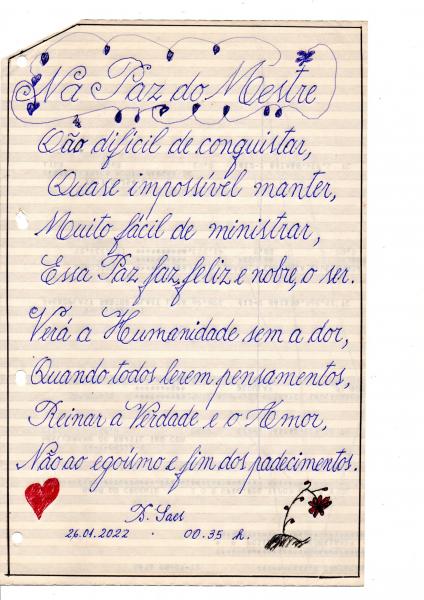 Na Paz do Mestre
Tão difícil de conquistar,
Quase impossível manter,
Muito fácil de ministrar,
Essa Paz faz, feliz e nobre, o ser.
Verá a Humanidade sem a dor,
Quando todos lerem pensamentos,
Reinar a Verdade e o Amor,
Não ao egoísmo e fim dos padecimentos.
D. Saes
26.01.2022 · 00.35 h.